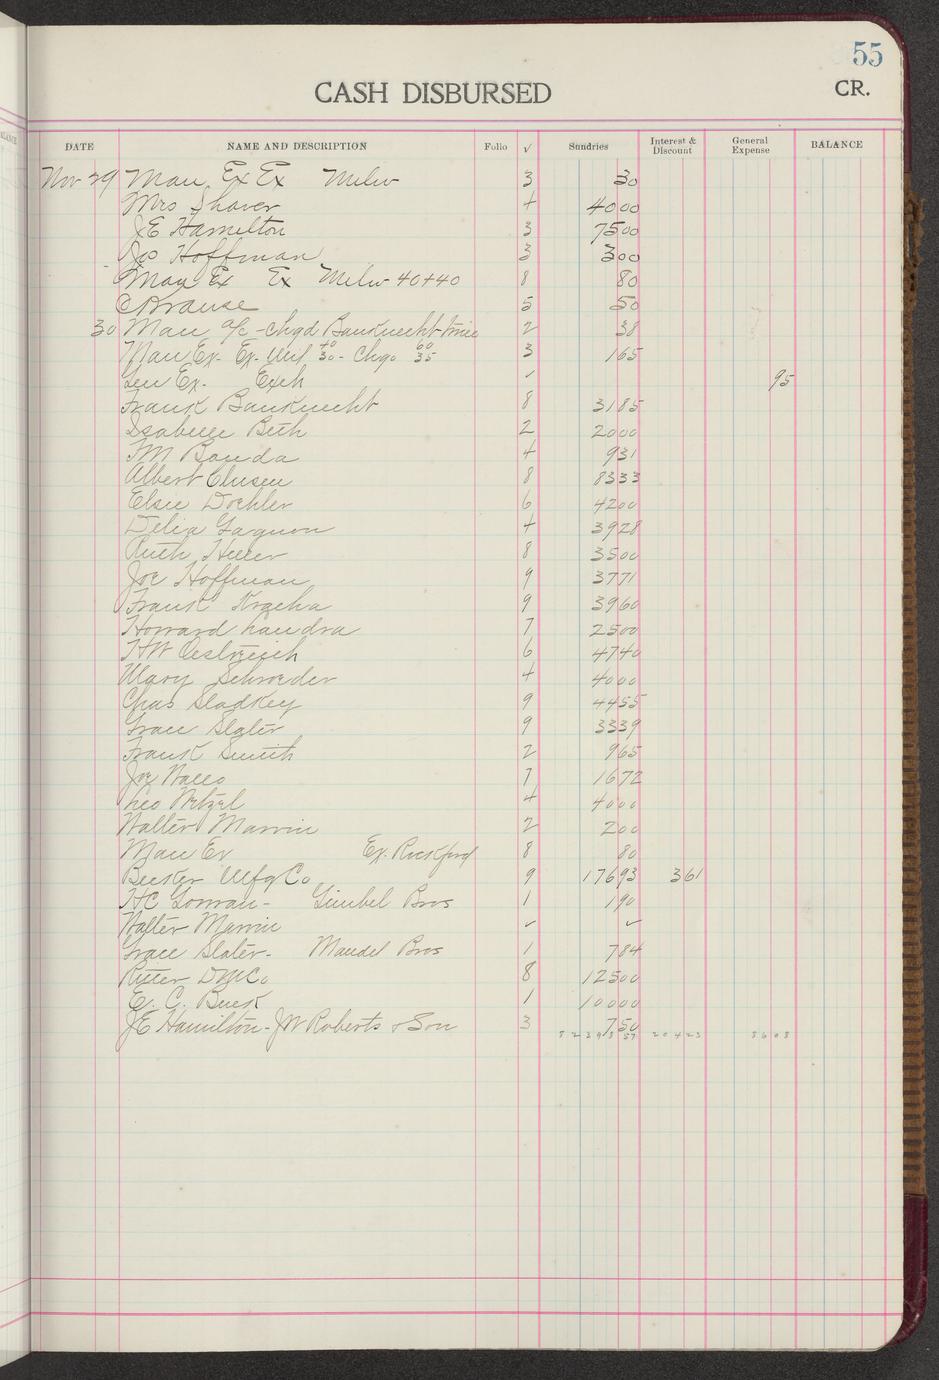 55
CASH DISBURSED CR.
DATE NAME AND DESCRIPTION Folio ✓ Sundries Interest & Discount General Expense BALANCE
Nov 29 Man. Ex Ex Milw 3 30
Mrs Shaver 4 4000
JE Hamilton 3 7500
Jos Hoffman 3 300
Man Ex Ex Milw 40+40 8 80
C Krause 5 50
30 Man a/c - chgd Bauknecht twice 2 38
Man Ex. Ex. Mil 40 30 - Chgo 60 35 3 165
Gen Ex. Exch ✓ 95
Frank Bauknecht 8 3185
Isabelle Beth 2 2000
Bonda 4 931
Albert Clusen 8 8333
Elsie Doehler 6 4200
Delia Gagnon 4 3928
Ruth Heller 8 3500
Joe Hoffman 9 3771
Frank 9 3960
Howard Landra 7 2500
HW Oestreich 6 4740
Mary Schroeder 4 4000
Chas Sladkey 9 4455
Grace Slater 9 3339
Frank Smith 2 965
Joe 7 1672
Leo Wetzel 4 4000
Walter Marvin 2 200
Man Ex Ex. Rockford 8 80
Becker Mfg Co 9 17693 361
HC Gorman - Gimbel Bros 1 190
Walter Marvin ✓ ✓
Grace Slater - Mandel Bros 1 784
Ritter D M Co 8 12500
E. C. Buck 1 10000
JE Hamilton - JW Roberts & Son 3 750
20423 8608